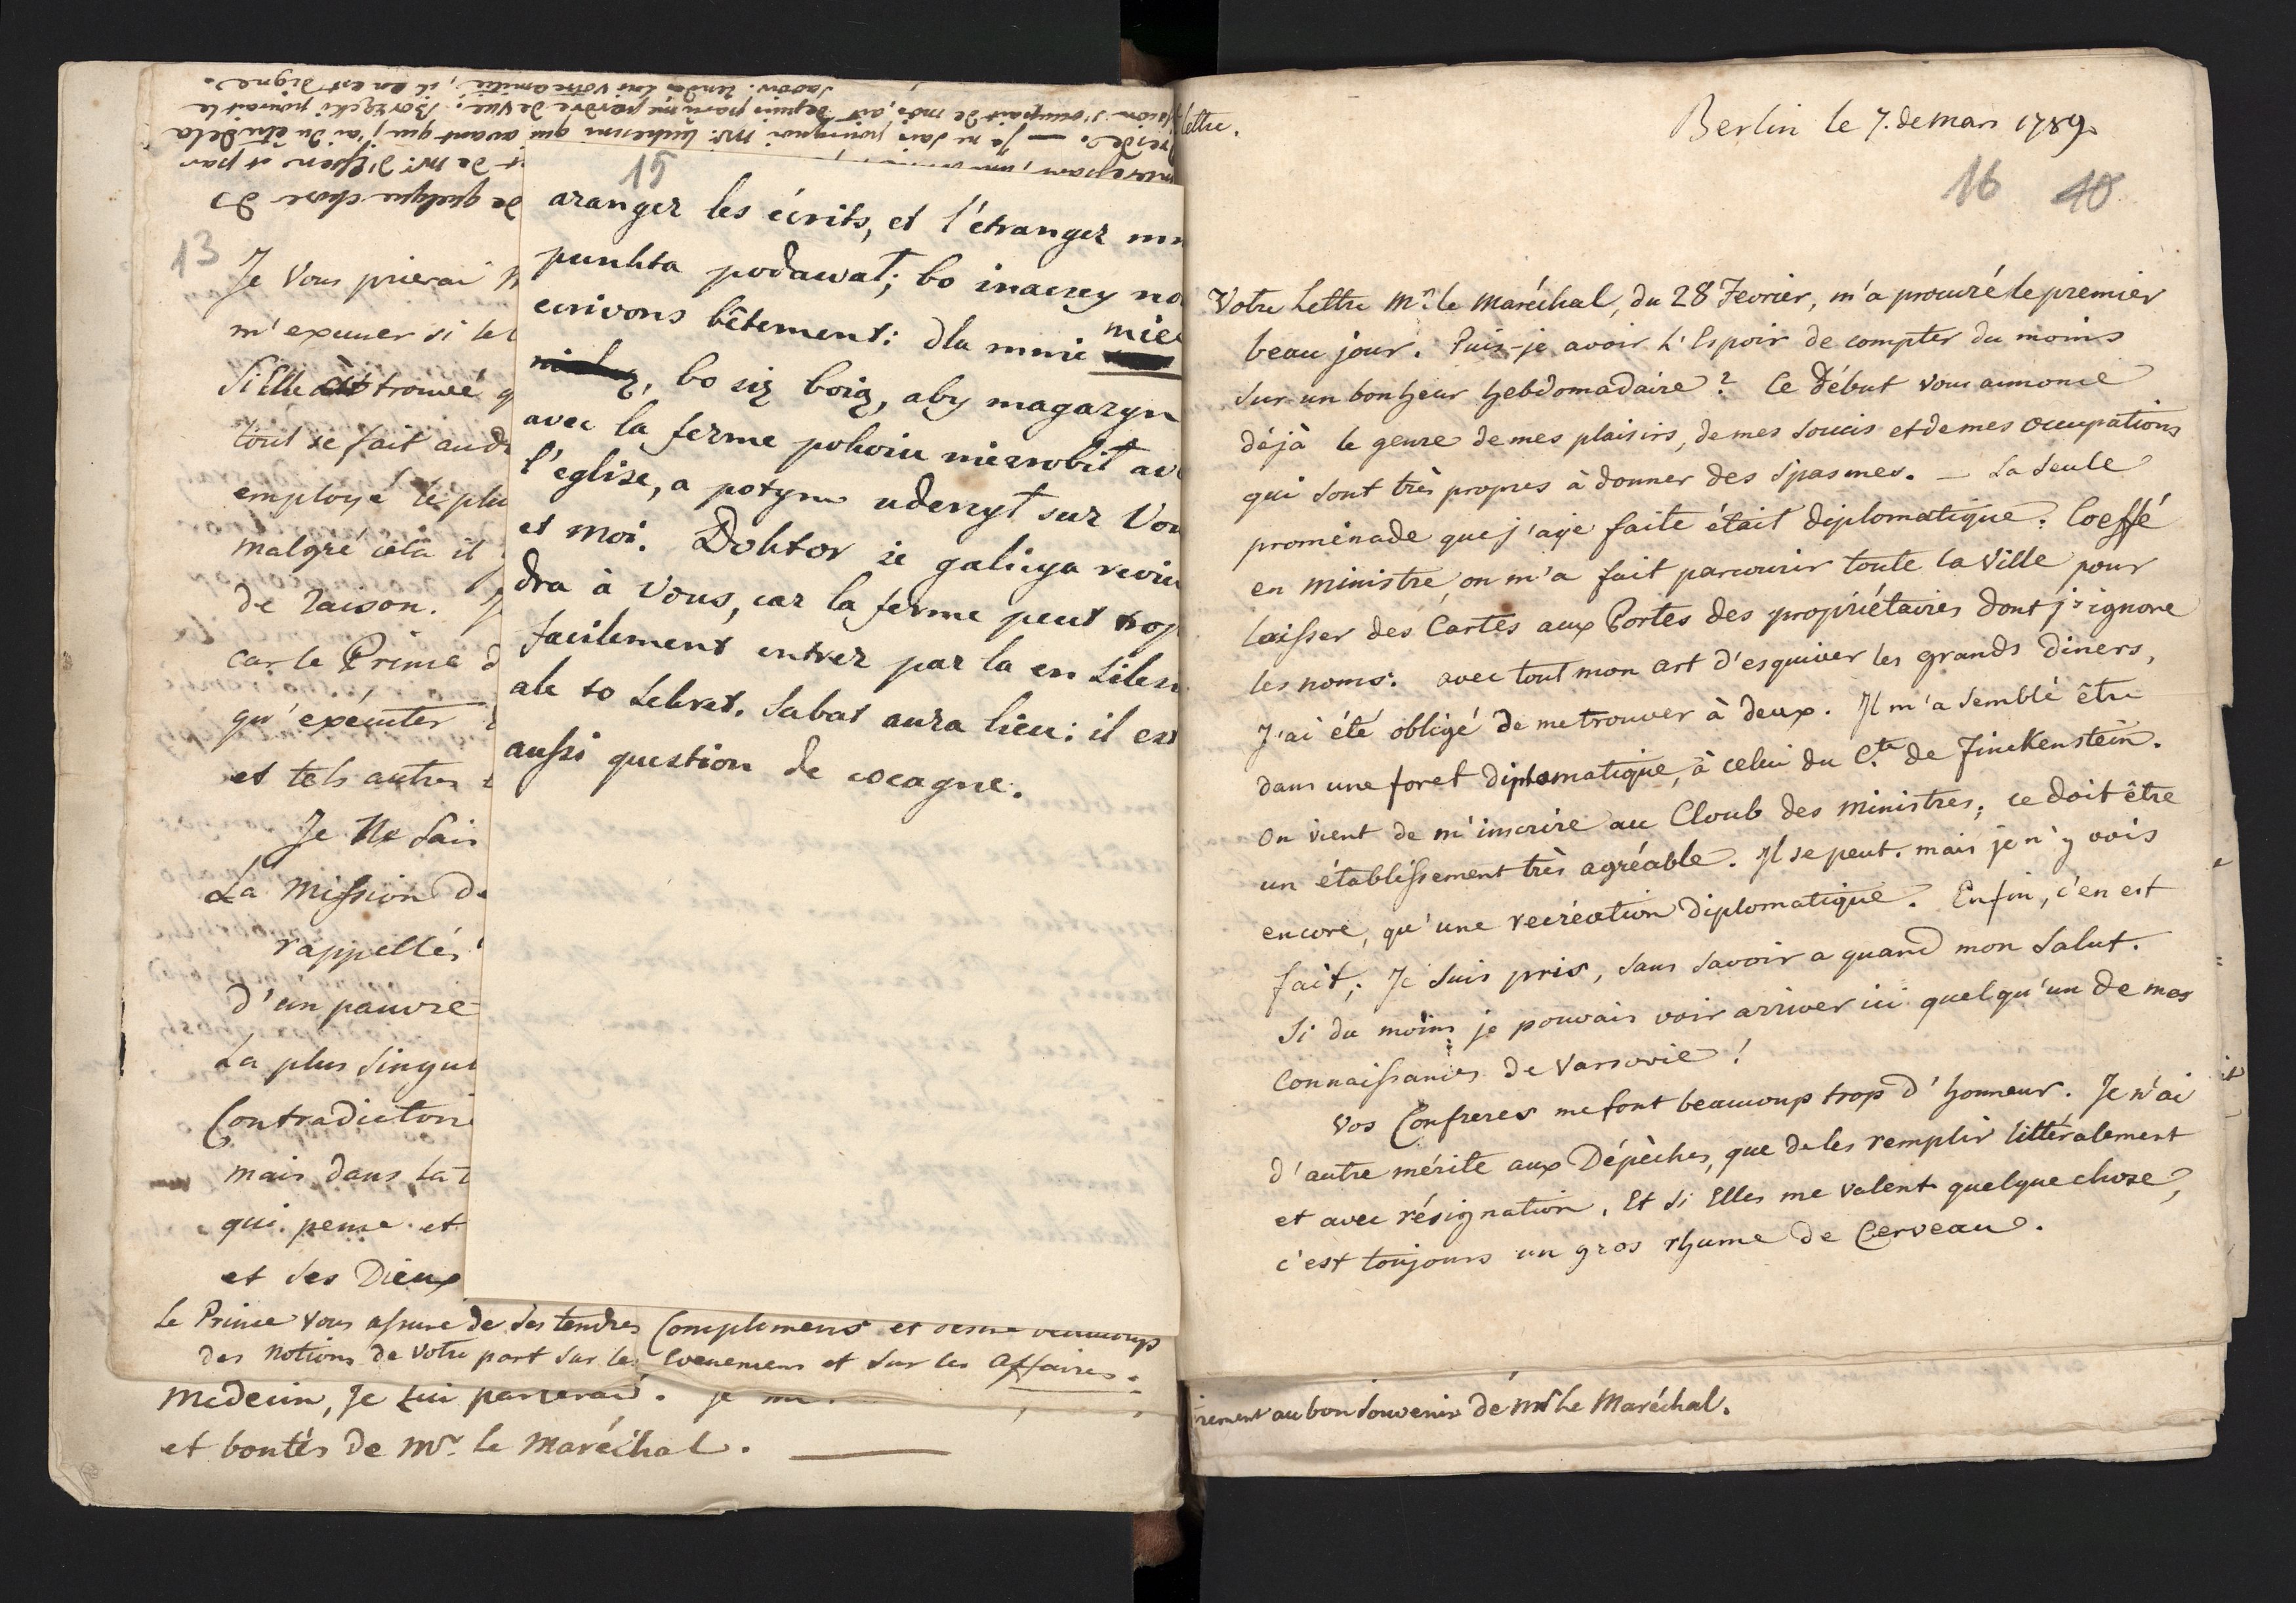 savoir. rendez lui votre amitié, il en est digne.
s'occupait de moi, ait depuis paru me perdre de vue. Borzęcki pourait le
reside. — Je ne sais pourquoi Mr. Luchesini qui avant que j'ai du être de la
de Mr. d'Essen et par
de quelque chose de
13
Je Vous prierai
m'excuser si les
Si Elle ait trouvé
tout se fait aud
employé le plu
malgré cela il
de raison.
car le Prince d
qu'exécuter
et tels autres
Je Ne sais
La Mission de
rappellés
d'un pauvre
La plus singul
Contradictoir
mais dans la
qui pense et
et ses Dieux
Le Prince Vous assure de ses tendres Complimens et
des Notions de Votre part sur les Evenemens et sur les Affaires.
Medecin, Je lui parlerai. je
et bontés de Mr. le Maréchal.
15
aranger les écrits, et l'étranger
punkta podawał; bo inaczey no
ecrivons bêtement: dla mnie
bo się boią, aby magazyn
avec la ferme pokoiu nie zrobił av
l'eglise, a potym uderzył sur Vou
et moi. Doktor ze galicya revien
dra à Vous, car la ferme peut trop
facilement entrer par la en Siles
ale to sekret. Sabat aura lieu: il est
aussi question de cocagne.
lettre.
Berlin le 7. de mars 1789.
16 40
Votre Lettre Mr. le Maréchal, du 28 Fevrier, m'a procuré le premier
beau jour. Puis-je avoir l'Espoir de compter du moins
sur un bonheur hebdomadaire? Ce Début vous annonce
déjà le genre de mes plaisirs, de mes soucis et de mes occupations
qui sont très propres à donner des spasmes. — La seule
promenade que j'aye faite était diplomatique. Coeffé
en ministre, on m'a fait parcourir toute la Ville pour
laisser des Cartes aux Portes des propriétaires dont j'ignore
les noms: avec tout mon art d'esquiver les grands diners,
J'ai été obligé de me trouver à deux. Il m'a semblé être
dans une foret diplomatique, à celui du Cte. de Finckenstein.
On vient de m'inscrire au Cloub des Ministres; ce doit être
un établissement très agréable. Il se peut. mais je n'y vois
encore, qu'une recréation diplomatique. Enfin, c'en est
fait; Je suis pris, sans savoir a quand mon salut.
Si du moins je pouvais voir arriver ici quelqu'un de mes
Connaissances de Varsovie!
Vos Confreres me font beaucoup trop d'honneur. Je n'ai
d'autre mérite aux Dépêches, que de les remplir littéralement
et avec résignation. Et si Elles me valent quelque chose,
c'est toujours un gros rhume de Cerveau.
au bon souvenir de Mr. le Maréchal.